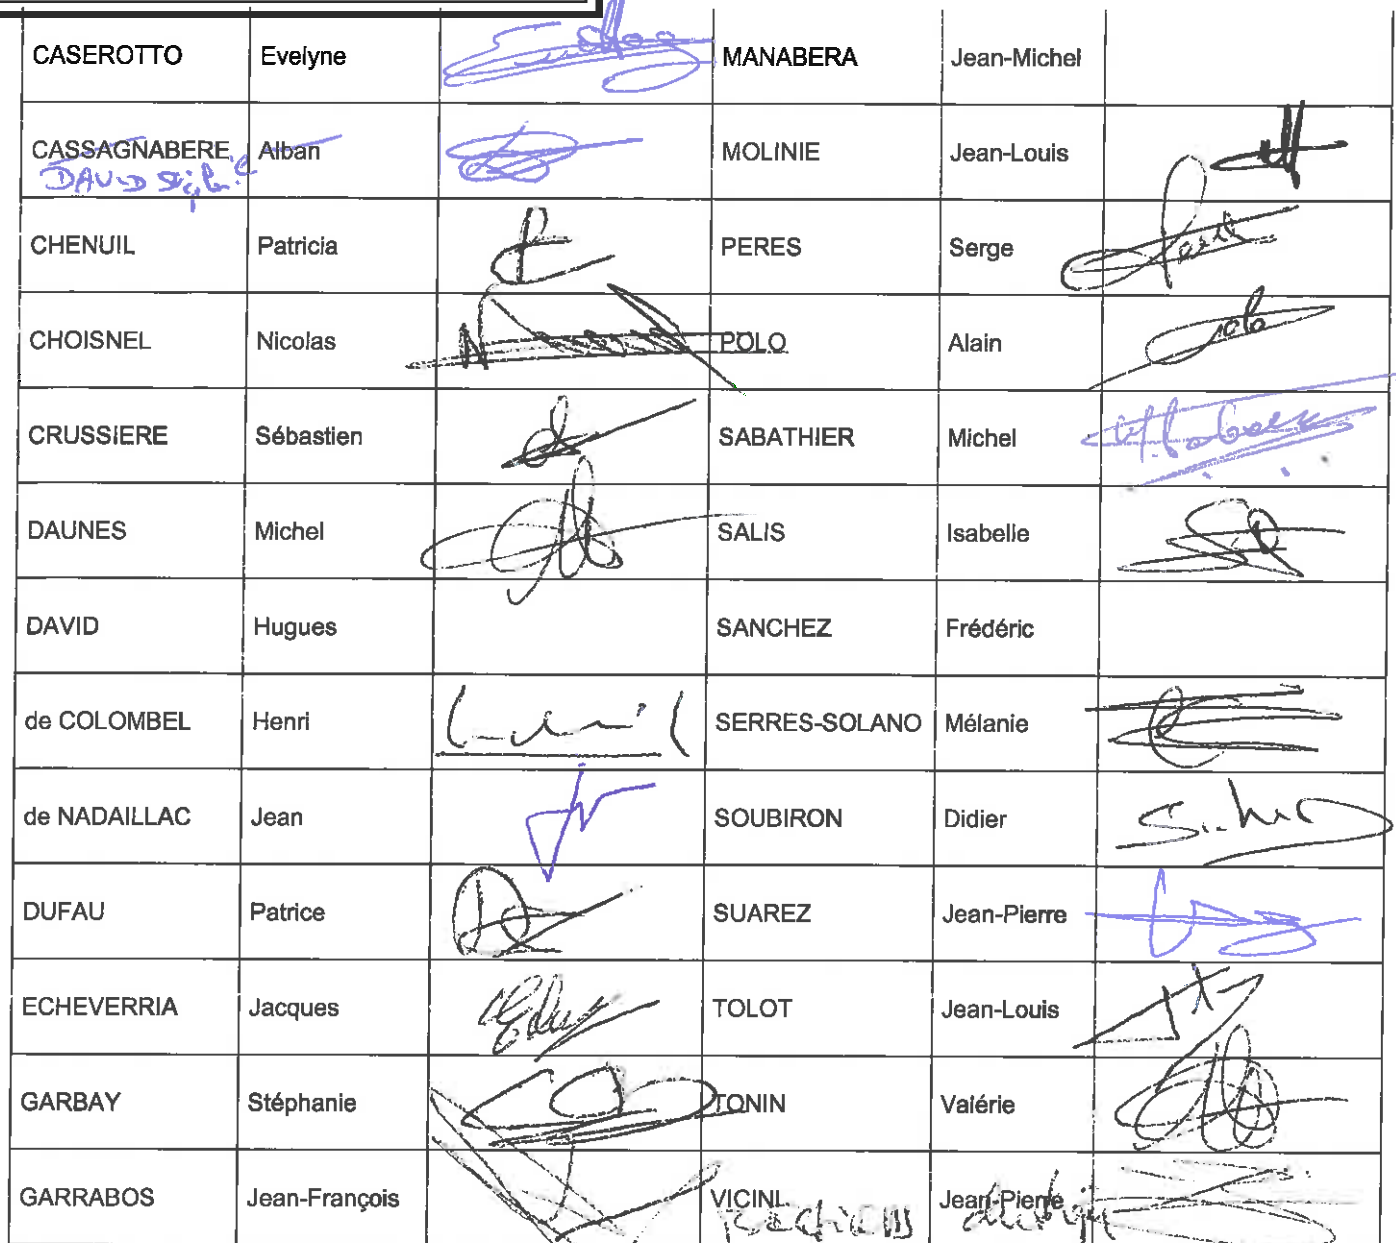 CASEROTTO Evelyne MANABERA Jean-Michel
CASSAGNABERE Alban MOLINIE Jean-Louis
DAVID
CHENUIL Patricia PERES Serge
CHOISNEL Nicolas POLO Alain
CRUSSIERE Sébastien SABATHIER Michel
DAUNES Michel SALIS Isabelle
DAVID Hugues SANCHEZ Frédéric
de COLOMBEL Henri SERRES-SOLANO Mélanie
de NADAILLAC Jean SOUBIRON Didier
DUFAU Patrice SUAREZ Jean-Pierre
ECHEVERRIA Jacques TOLOT Jean-Louis
GARBAY Stéphanie TONIN Valérie
GARRABOS Jean-François VICINI Jean-Pierre